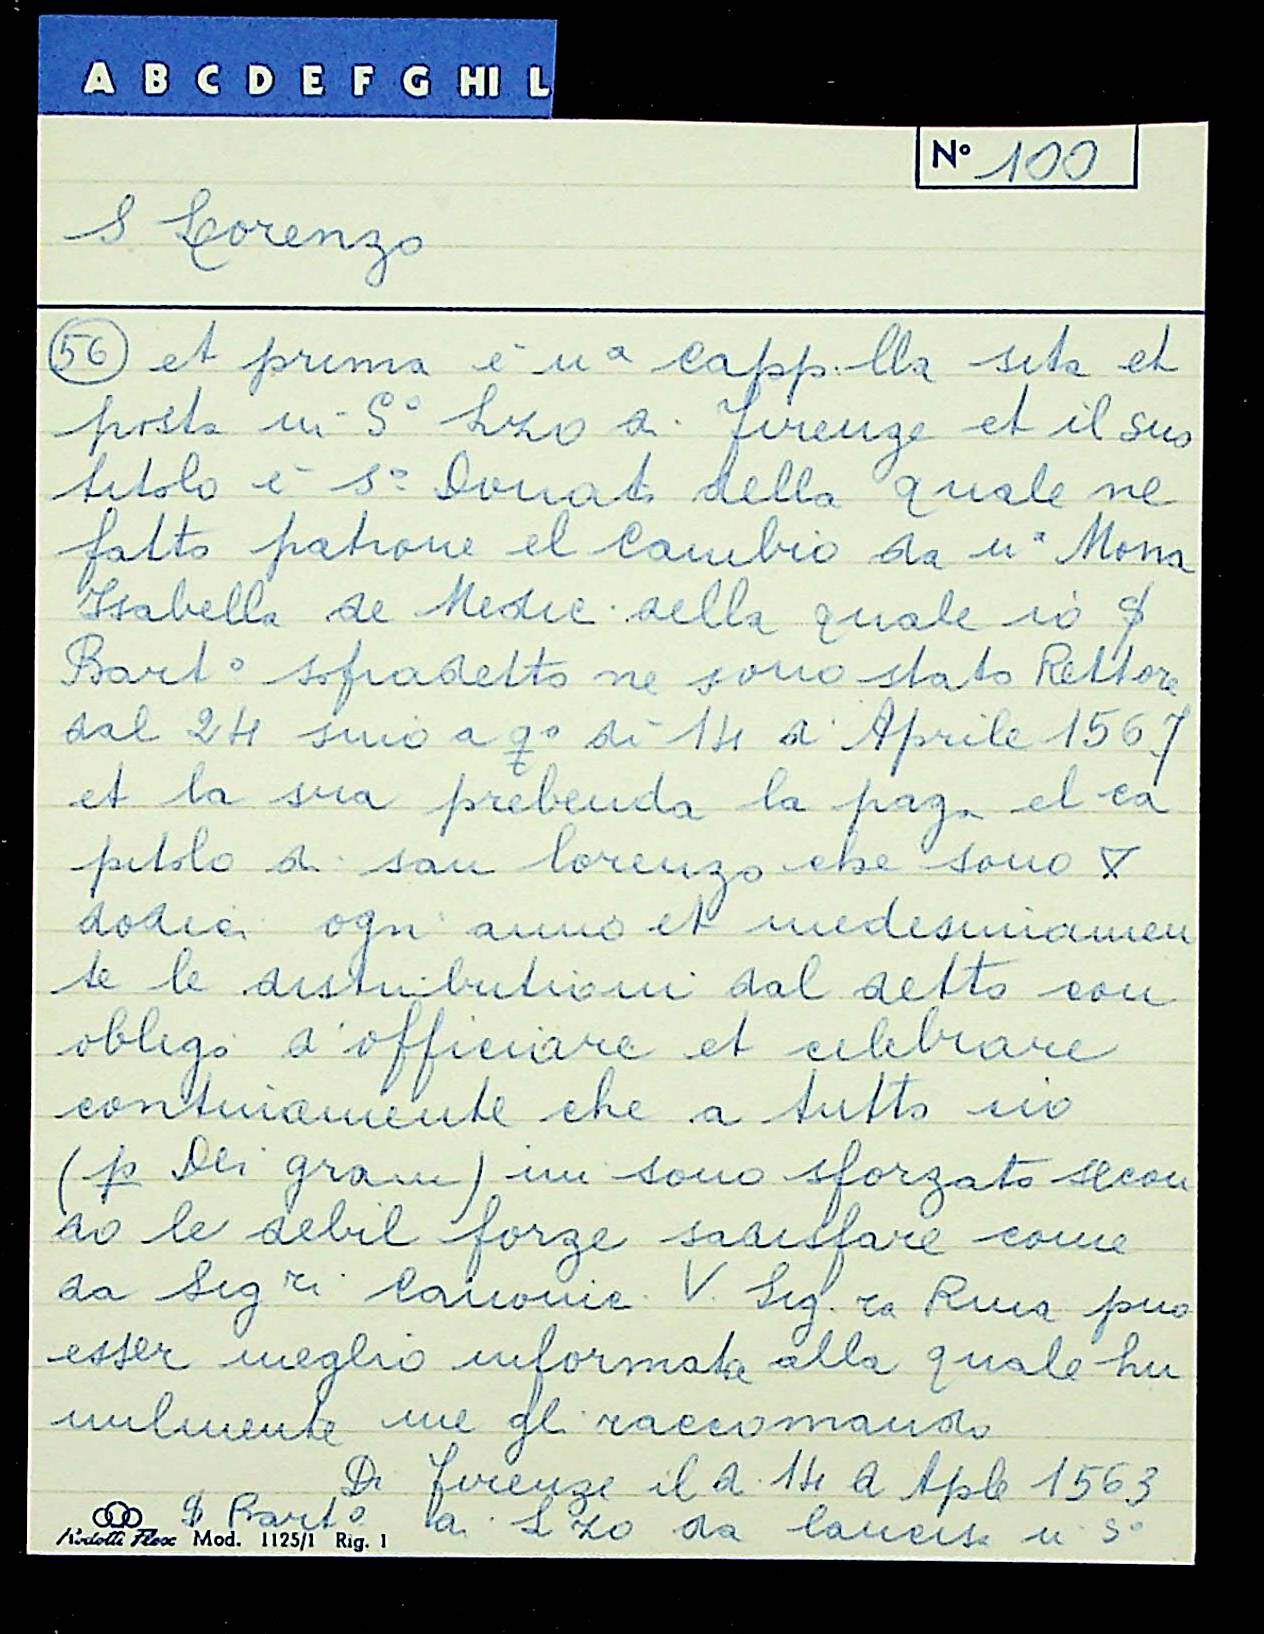 A B C D E F G HI L
N° 100
S Lorenzo
56 et prima è uª Capp.lla sita et
posta in S° Lzo di Firenze et il suo
titolo è S° Donato della quale ne
fatto patrone el Cambio da uª Mona
Isabella de Medic. della quale io
Bart° sopradetto ne sono stato Rettore
dal 24 sino a q° dì 14 d'Aprile 1567
et la sua prebenda la paga el ca
pitolo di san lorenzo che sono
dodici ogni anno et medesimamen
te le distributioni dal detto con
obligo d'officiare et celebrare
continuamente che a tutto cio
(p Dei gram) mi sono sforzato secon
do le debil forze sadisfare come
da Sig.ri Canonic. V. Sig.ra Rma puo
esser meglio informata alla quale hu
milmente me gli raccomando
Di Firenze il di 14 d Aple 1563
Bart° di Lzo da Lancisa in S°
Mod. 1125/1 Rig. 1